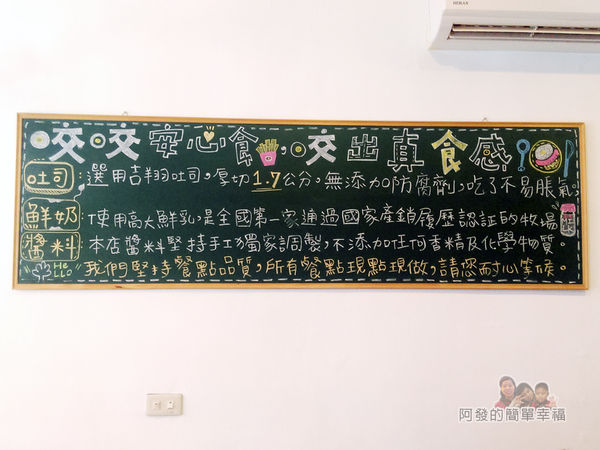 HERAN
咬咬安心食,咬出真食感
吐司:選用吉翔吐司,厚切1.7公分,無添加防腐劑,吃了不易脹氣。
鮮奶:使用高大鮮乳,是全國第一家通過國家產銷履歷認証的牧場
醬料 本店醬料堅持手工獨家調製,不添加任何香精及化學物質。
HELLO 我們堅持餐點品質,所有餐點現點現做,請您耐心等候。
阿發的簡單幸福